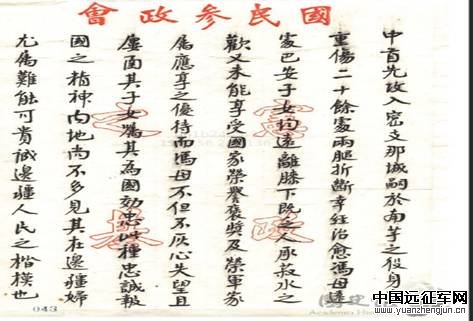 國民參政會
中首先攻入密支那城嗣於南芋之役身
重傷二十餘處兩腿折斷幸經治愈馮母遠
處巴安子女均遠離膝下既乏人承菽水之
歡又未能享受國家榮譽褒獎及榮軍家
屬應享之優待而馮母不但不灰心失望且
屢函其子女囑其為國効忠此種忠誠報
國之精神內地尚不多見其在邊疆婦
尤屬難能可貴誠邊疆人民之楷模也
憲政
之基
043
中国远征军网
www.yuanzhengjun.cn